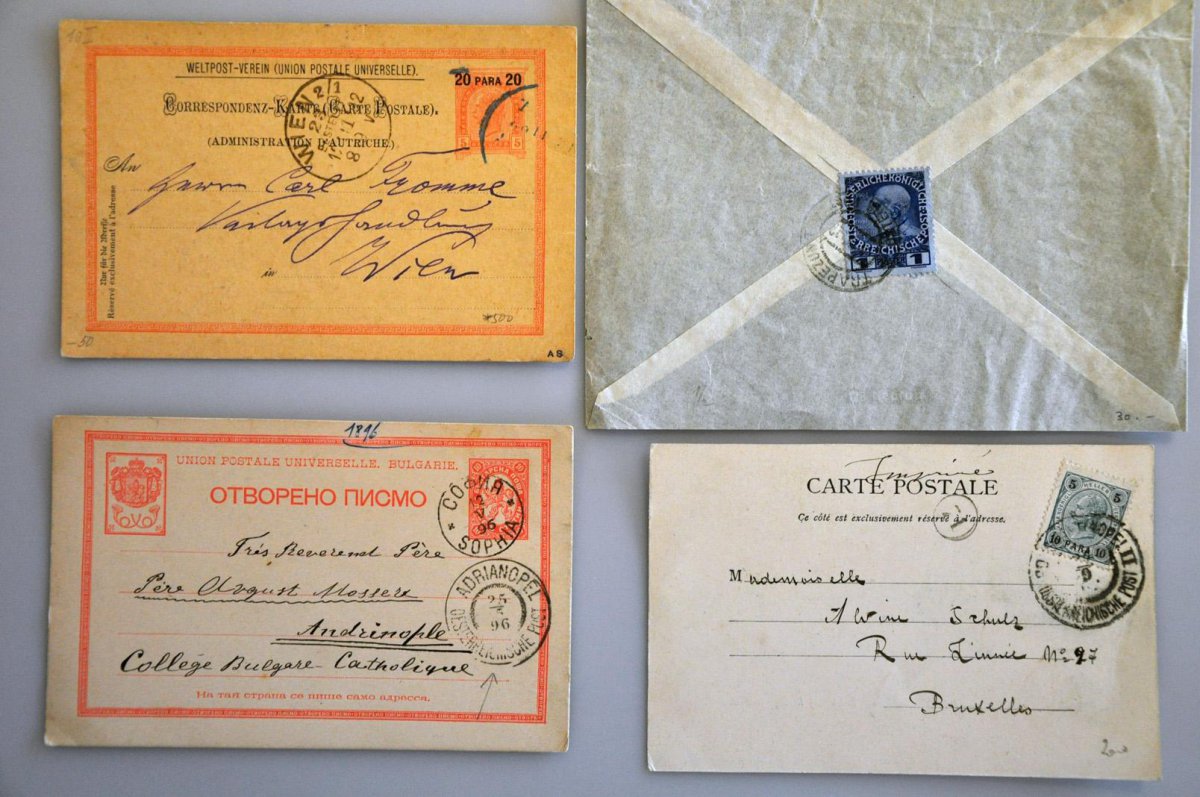 10 I
WELTPOST-VEREIN (UNION POSTALE UNIVERSELLE).
20 PARA 20
CORRESPONDENZ-KARTE (CARTE POSTALE).
(ADMINISTRATION D'AUTRICHE)
5 5
WIEN 2/1
An
Herrn Carl Fromme
Verlagshandlung
in Wien
Nur für die Adresse
Réservé exclusivement à l'adresse
*500
-50
AS
KAISERLICHE KÖNIGLICHE
ÖSTERREICHISCHE
1 1
TRAPEZUNT
1/2
30.-
1896
UNION POSTALE UNIVERSELLE. BULGARIE.
ОТВОРЕНО ПИСМО
10 10
СОФИЯ
12
V
96
SOPHIA
Très Reverend Père
Père August Mosser
Andrinople
Collége Bulgare Catholique
ADRIANOPEL
25
96
OSTERREICHISCHE POST
На тая страна се пише само адресса.
Imprimé
CARTE POSTALE
Ce côté est exclusivement réservé à l'adresse.
5 HELLER 5
10 PARA 10
OPEL II
OSTERREICHISCHE POST
Mademoiselle
Alvine Schulz
Rue Linnée No 27
Bruxelles